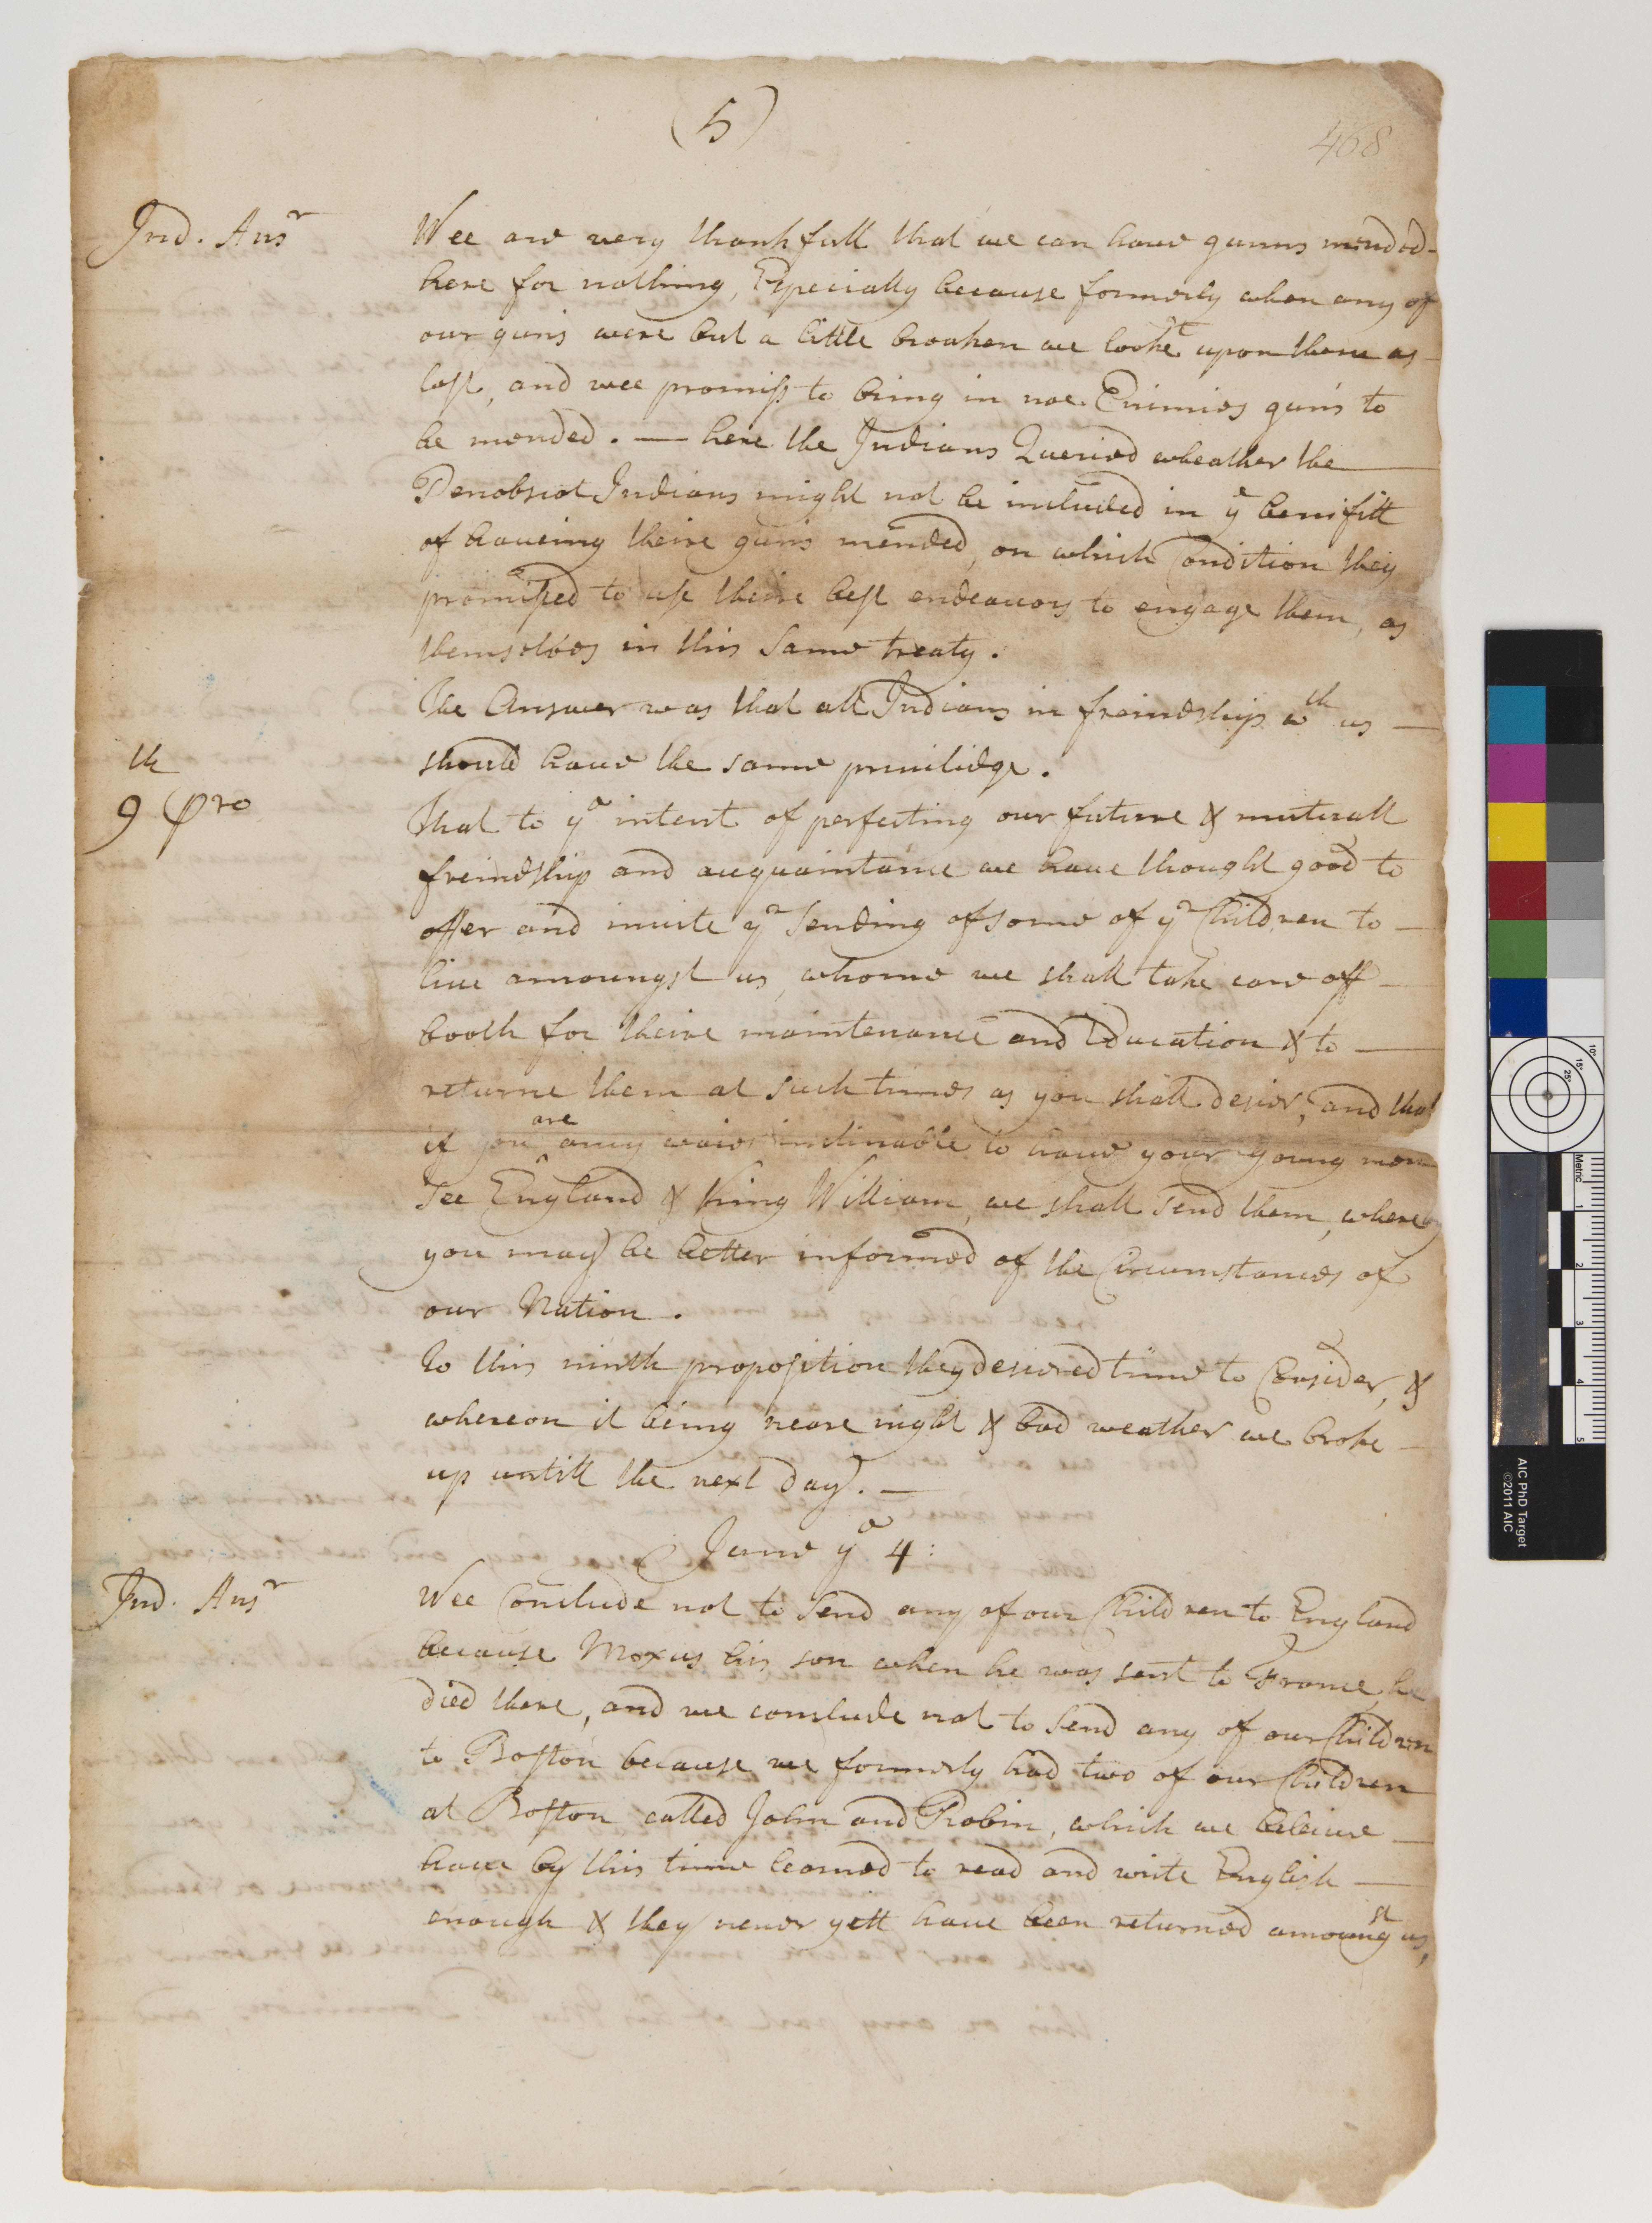 (5)
468
Ind. Ansr
Wee are very thankfull that we can haue gunns mended
here for nothing, Especially because formerly when any of
our guns were but a little broaken we lookt upon them as
lost, and wee promiss to bring in noe Enimies guns to
be mended. — here the Indians Queried wheather the
Penobscot Indians might not be included in ye benifitt
of haueing theire guns mended, on which Condition they
promissed to use theire best endeauors to engage them, as
themselves in this same treaty.
The Answer was that all Indians in freindship wth us
should haue the same priuilidge.
9th Pro
That to ye intent of perfecting our future & mutuall
freindship and acquaintance we haue thought good to
offer and inuite yr Sending of some of yr Children to
liue amoungst us, whome we shall take care off
booth for theire maintenance and Education & to
returne them at such times as you shall desier, and that
if you are any waies inclinable to haue your young men
See England & King William, we shall send them, whereby
you may be better informed of the Circumstances of
our Nation.
To this ninth proposition they desiered time to Consider, &
whereon it being neare night & bad weather we broke
up untill the next day. —
June ye 4:
Ind. Ansr
Wee Conclude not to Send any of our Children to England
because Moxus his son when he was sent to France, he
died there, and we conclude not to Send any of our Children
to Boston because we formerly had two of our Children
at Boston called John and Robin, which we beleiue
haue by this time learned to read and write English
enough & they neuer yett haue been returned amoungst us,